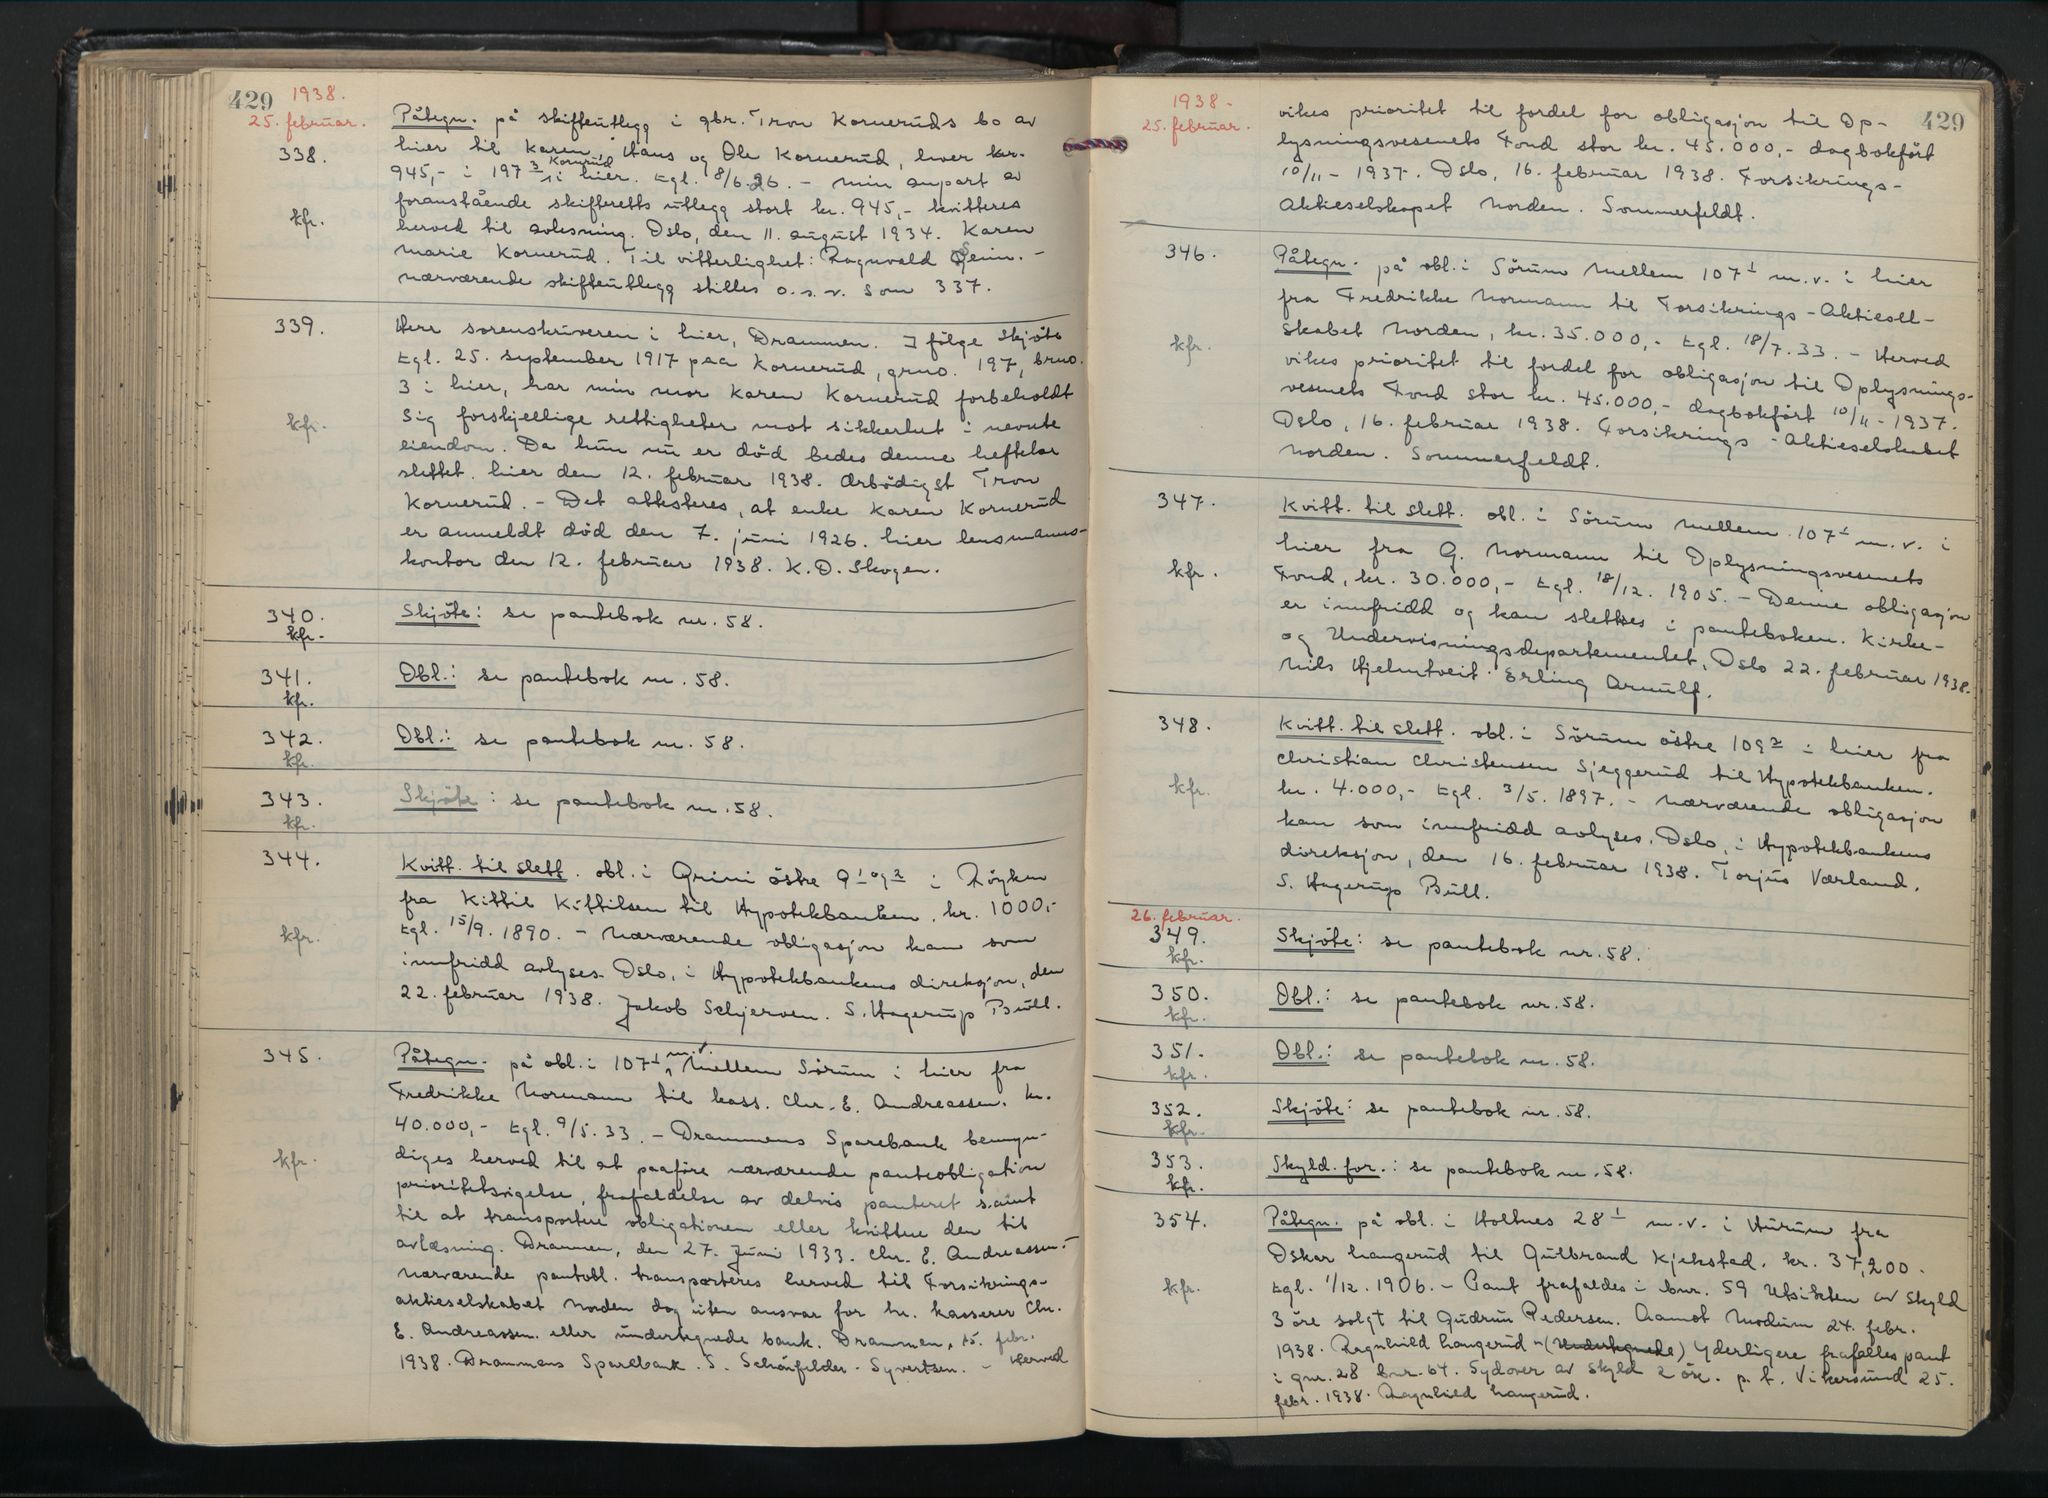 429 1938.
25. februar.
338.
kfr.
Påtegn. på skifteutlegg i gbr. Tron Kornerüds bo av
hier til Karen, Hans og Ole Kornerüd, hver kr.
945,- i 197 3 Kornrüd i hier. tgl. 8/6.26. - Min anpart av
foranstående skifteretts utlegg stort kr. 945,- kvitteres
herved til avlesning. Oslo, den 11. august 1934. Karen
Marie Kornerüd. Til vitterlighet: Ragnvald . -
nærværende skifteutlegg stilles o.s.v. som 337.
339.
kfr.
Herr sorenskriveren i hier, Drammen. I følge skjöte
tgl. 25. september 1917 paa Kornerüd, grno. 197, brno.
3 i hier, har min mor Karen Kornerüd forbeholdt
sig forskjellige rettigheter mot sikkerhet i nevnte
eiendom. Da hun nu er död bedes denne heftelse
slettet. hier den 12. februar 1938. Ærbödigst Tron
Kornerüd. - Det attesteres, at enke Karen Kornerüd
er anmeldt död den 7. juni 1926. hier lensmanns-
kontor den 12. februar 1938. K. O. Skogen.
340.
kfr.
Skjöte: se pantebok nr. 58.
341.
kfr.
Obl.: se pantebok nr. 58.
342.
kfr.
Obl.: se pantebok nr. 58.
343.
kfr.
Skjöte: se pantebok nr. 58.
344.
kfr.
Kvitt. til slett. obl. i Grini östre 9 1 og 2 i Röyken
fra Kittil Kittilsen til Hypotekbanken. kr. 1000,-
tgl. 15/9. 1890. - Nærværende obligasjon kan som
innfridd avlyses. Oslo, i Hypotekbankens direksjon, den
22. februar 1938. Jakob Schjerven. S. Hagerup Bull.
345.
kfr.
Påtegn. på obl. i 107 1 m.v. Mellem Sörum i hier fra
Fredrikke Normann til kass. Chr. E. Andreassen. kr.
40.000,- tgl. 9/5. 33. - Drammens Sparebank bemyn-
diges herved til at paaföre nærværende panteobligation
prioritetsvigelse, frafaldelse av delvis panteret samt
til at transportere obligationen eller kvittere den til
avlæsning. Drammen, den 27. Juni 1933. Chr. E. Andreassen. -
Nærværende pantobl. transporteres herved til Forsikrings-
aktieselskabet Norden dog uten ansvar for hr. kasserer Chr.
E. Andreassen eller undertegnede bank. Drammen, 15. febr.
1938. Drammens Sparebank. S. Schönfelder. Syvertsen. - Herved
1938. 429
25. februar.
vikes prioritet til fordel for obligasjon til Op-
lysningsvesenets Fond stor kr. 45.000,- dagbokfört
10/11 - 1937. Oslo, 16. februar 1938. Forsikrings-
Aktieselskapet Norden. Sommerfeldt.
346.
kfr.
Påtegn. på obl. i Sörum Mellem 107 1 m.v. i hier
fra Fredrikke Normann til Forsikrings-Aktiesel-
skabet Norden, kr. 35.000,- tgl. 18/7. 33. - Herved
vikes prioritet til fordel for obligasjon til Oplysnings-
vesenets Fond stor kr. 45.000,- dagbokfört 10/11 - 1937.
Oslo, 16. februar 1938. Forsikrings-Aktieselskabet
Norden. Sommerfeldt.
347.
kfr.
Kvitt. til slett. obl. i Sörum Mellem 107 1 m.v. i
hier fra G. Normann til Oplysningsvesenets
Fond, kr. 30.000,- tgl. 18/12. 1905. - Denne obligasjon
er innfridd og kan slettes i panteboken. Kirke-
og Undervisningsdepartementet, Oslo 22. februar 1938.
Nils Hjelmtveit. Erling Arnulf.
348.
kfr.
Kvitt. til slett. obl. i Sörum östre 109 2 i hier fra
Christian Christensen Sjeggerüd til Hypotekbanken.
kr. 4.000,- tgl. 3/5. 1897. - Nærværende obligasjon
kan som innfridd avlyses. Oslo, i Hypotekbankens
direksjon, den 16. februar 1938. Torjus Værland.
S. Hagerup Bull.
26. februar.
349.
kfr.
Skjöte: se pantebok nr. 58.
350.
kfr.
Obl.: se pantebok nr. 58.
351.
kfr.
Obl.: se pantebok nr. 58.
352.
kfr.
Skjöte: se pantebok nr. 58.
353.
kfr.
Skyld.for.: se pantebok nr. 58.
354.
kfr.
Påtegn. på obl. i Holtnes 28 1 m.v. i Hurum fra
Oskar Langerüd til Gulbrand Kjekstad. kr. 37,200.
tgl. 1/12. 1906. - Pant frafaldes i bnr. 59 Utsikten av skyld
3 öre solgt til Gudrun Pedersen. Aamot Modum 24. febr.
1938. Ragnhild Langerüd - (Undertegnede) Yderligere frafalles pant
i gnr. 28 bnr. 64. Sydover av skyld 2 öre. p. t. Vikersund 25.
febr. 1938. Ragnhild Langerüd.